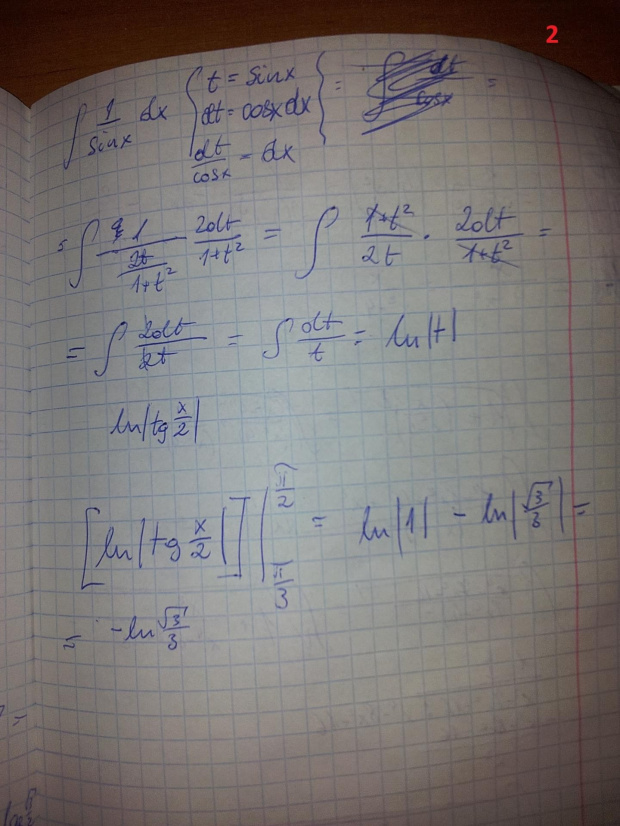 2
∫ 1/sinx dx { t = sinx
dt = cosx dx
dt/cosx = dx } = =
= ∫ 1/(2t/(1+t²)) 2dt/(1+t²) = ∫ (1+t²)/2t · 2dt/(1+t²) =
= ∫ 2dt/2t = ∫ dt/t = ln|t|
ln|tg x/2|
[ln|tg x/2|] | π/2 π/3 = ln|1| - ln|√3/3| =
= -ln √3/3